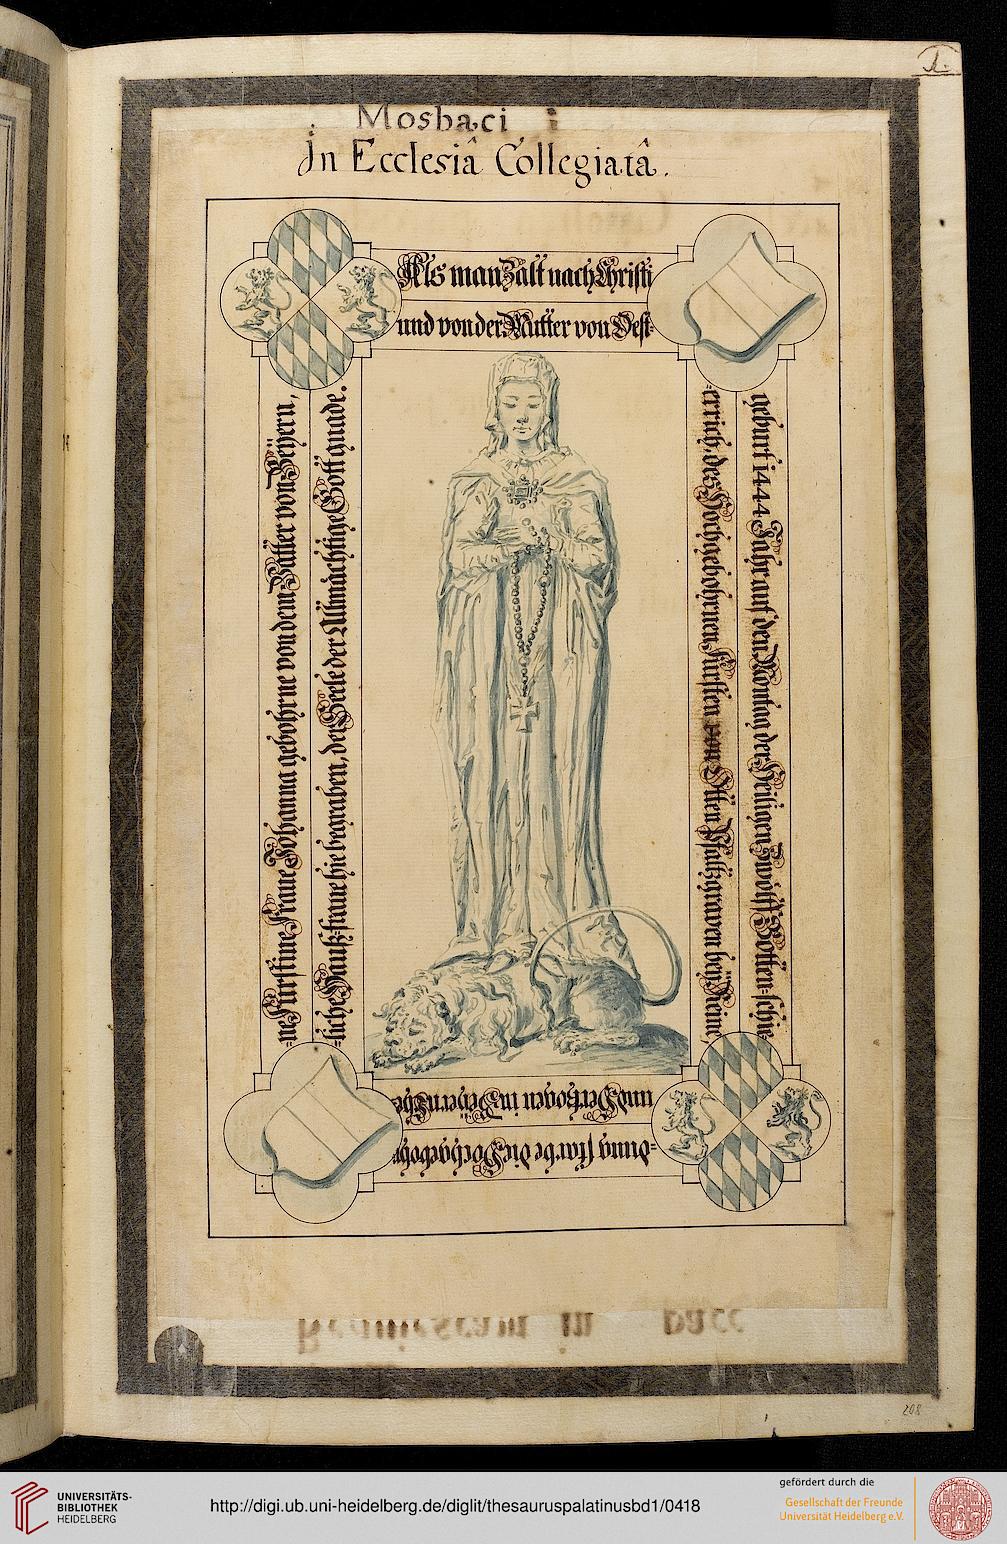 1.
Mosbaci
In Ecclesiâ Collegiatâ.
Als man Zalt nach Christi
geburt 1444. Jahr auf den Montag der Heiligen Zwölff Botten=schie=
=dung starbe die Hochgebohr
=ne Fürstine Fraue Johanna gebohrne von dem Vatter von Beÿern,
und von der Mutter von Oest=
=errich, des Hochgebohrnen Fürsten von Otten Pfaltzgraven beÿ Reine,
und Hertzogen in Beyern Ehe
=liche Hauß=fraue hie begraben, der Seele der Allmächtige Gott gnade.
in pace
208
UNIVERSITÄTS-
BIBLIOTHEK
HEIDELBERG
http://digi.ub.uni-heidelberg.de/diglit/thesauruspalatinusbd1/0418
gefördert durch die
Gesellschaft der Freunde
Universität Heidelberg e.V.